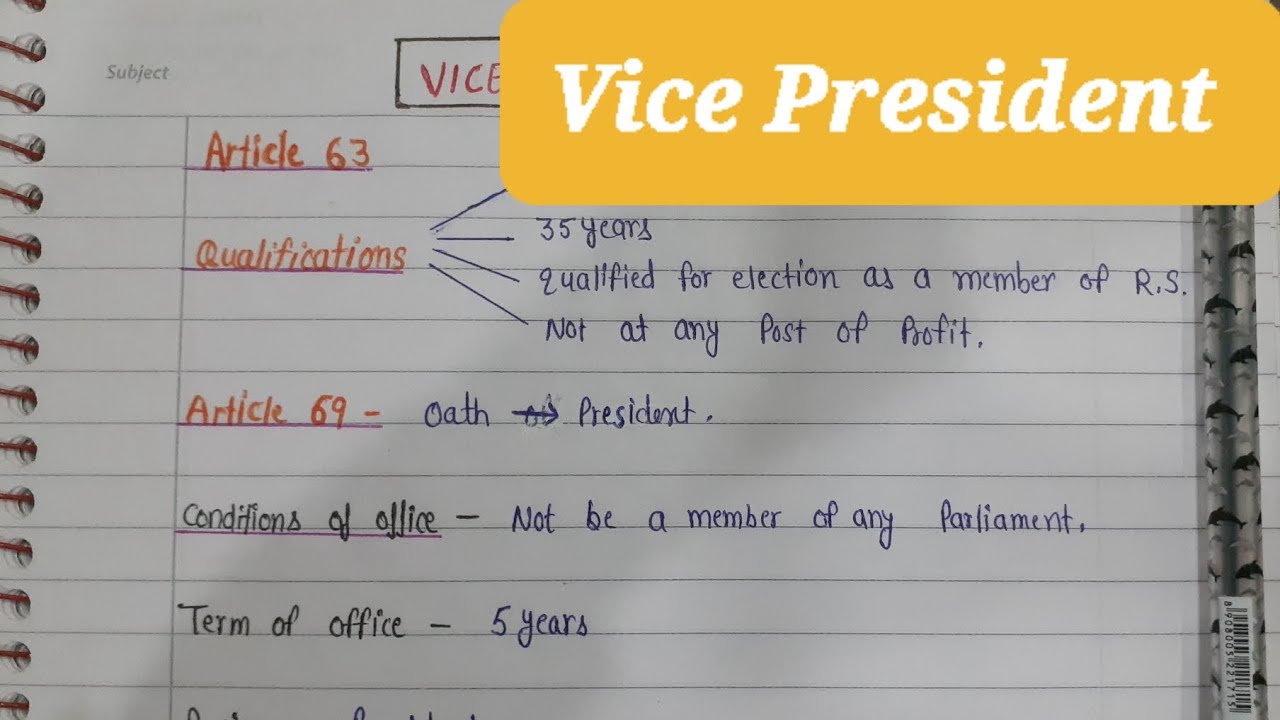 Subject
VICE
Vice President
Article 63
Qualifications
35 years
qualified for election as a member of R.S.
Not at any Post of Profit.
Article 69 - Oath → President.
Conditions of office - Not be a member of any Parliament.
Term of office - 5 years
8908005221715